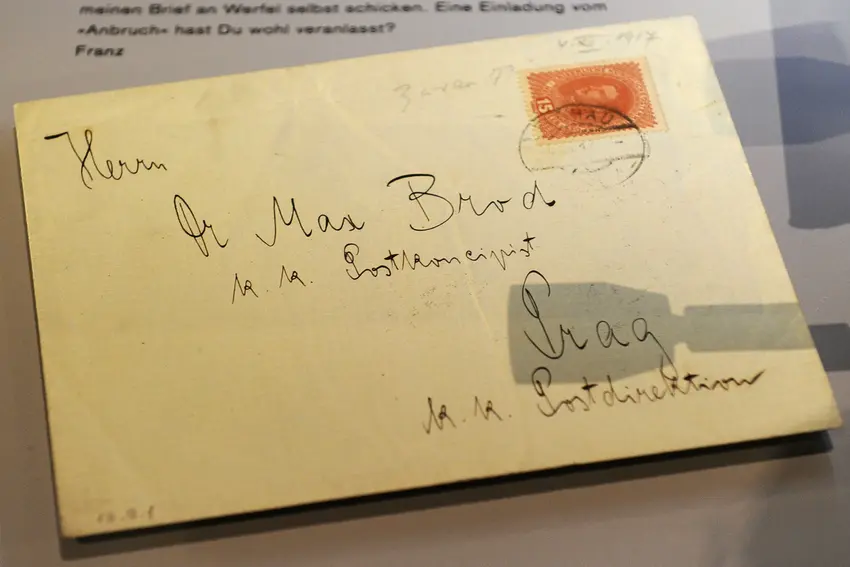 meinen Brief an Werfel selbst schicken. Eine Einladung vom
»Anbruch« hast Du wohl veranlasst?
Franz
1917
15
Herrn
Dr Max Brod
k. k. Postkoncipist
Prag
k. k. Postdirektion